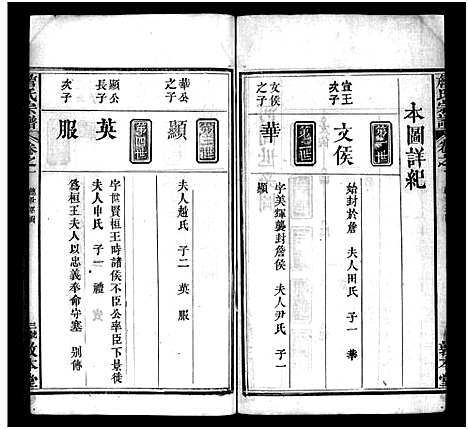 本圖詳紀
宣王
次子
第一世
文侯
始封於詹 夫人田氏 子一 華
文侯
之子
第二世
華
字美輝襲封詹侯 夫人尹氏 子一
顯
華公
之子
第三世
顯
夫人趙氏 子二 英 服
顯公
長子
第四世
英
字世賢桓王時諸侯不臣公率臣下景從
夫人申氏 子一 禮
次子
服
為桓王夫人以忠義奉命守塞 別傳
詹氏宗譜
卷之一
敦本堂